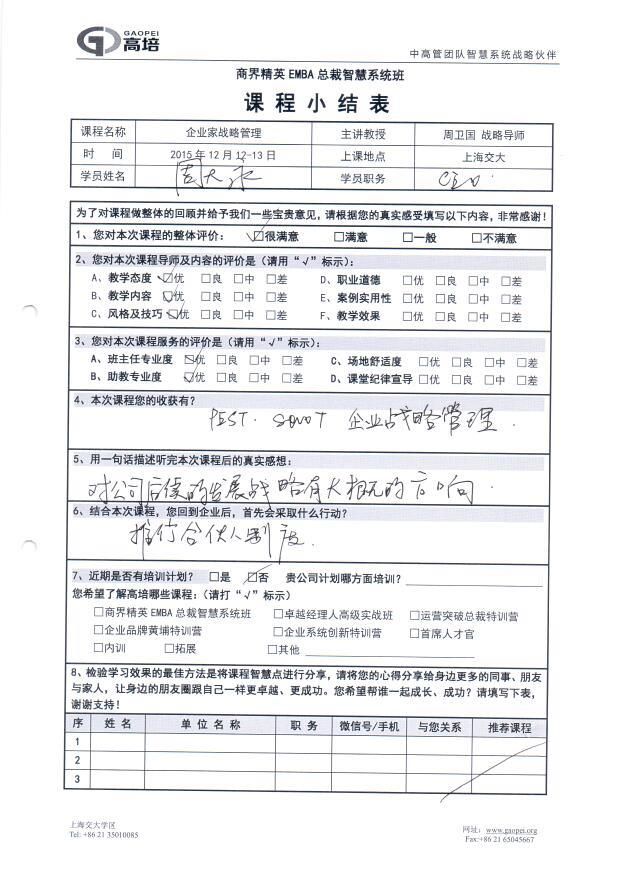 GAOPEI
高培
中高管团队智慧系统战略伙伴
商界精英EMBA总裁智慧系统班
课程小结表
课程名称 企业家战略管理 主讲教授 周卫国 战略导师
时 间 2015年12月12-13日 上课地点 上海交大
学员姓名 周大永 学员职务 CEO.
为了对课程做整体的回顾并给予我们一些宝贵意见,请根据您的真实感受填写以下内容,非常感谢!
1、您对本次课程的整体评价: ☑很满意 □满意 □一般 □不满意
2、您对本次课程导师及内容的评价是(请用“√”标示):
A、教学态度 ☑优 □良 □中 □差 D、职业道德 □优 □良 □中 □差
B、教学内容 ☑优 □良 □中 □差 E、案例实用性 □优 □良 □中 □差
C、风格及技巧 ☑优 □良 □中 □差 F、教学效果 □优 □良 □中 □差
3、您对本次课程服务的评价是(请用“√”标示):
A、班主任专业度 ☑优 □良 □中 □差 C、场地舒适度 □优 □良 □中 □差
B、助教专业度 ☑优 □良 □中 □差 D、课堂纪律宣导 □优 □良 □中 □差
4、本次课程您的收获有?
PEST. SWOT 企业战略管理.
5、用一句话描述听完本次课程后的真实感想:
对公司后续的发展战略有大相的影响.
6、结合本次课程,您回到企业后,首先会采取什么行动?
推行合伙人制度.
7、近期是否有培训计划? □是 ☑否 贵公司计划哪方面培训?
您希望了解高培哪些课程:(请打“√”标示)
□商界精英EMBA总裁智慧系统班 □卓越经理人高级实战班 □运营突破总裁特训营
□企业品牌黄埔特训营 □企业系统创新特训营 □首席人才官
□内训 □拓展 □其他
8、检验学习效果的最佳方法是将课程智慧点进行分享,请将您的心得分享给身边更多的同事、朋友
与家人,让身边的朋友圈跟自己一样更卓越、更成功。您希望帮谁一起成长、成功?请填写下表,
谢谢支持!
序 姓 名 单 位 名 称 职 务 微信号/手机 与您关系 推荐课程
1
2
3
上海交大学区
Tel: +86 21 35010085
网址: www.gaopei.org
Fax:+86 21 65045667